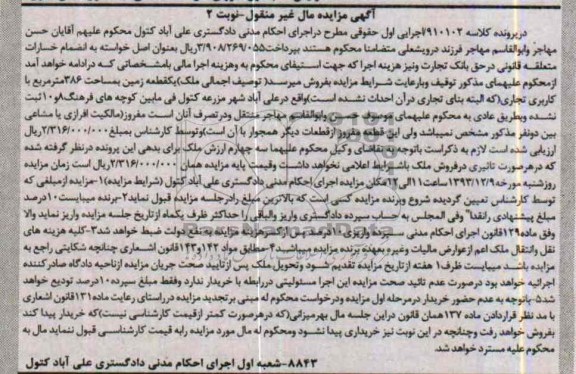 آگهی مزایده مال غیر منقول-نوبت ۲
درپرونده کلاسه ۹۱۰۱۰۲/اجرایی اول حقوقی مطرح دراجرای احکام مدنی دادگستری علی آباد کتول محکوم علیهم آقایان حسن
مهاجر وابوالقاسم مهاجر فرزند درویشعلی متضامنا محکوم هستند بپرداخت۳/۹۰۸/۲۶۹/۰۵۵ریال بعنوان اصل خواسته به انضمام خسارات
متعلقه قانونی درحق بانک تجارت ونیز هزینه اجرا که جهت استیفای محکوم به وهزینه اجرا مالی بامشخصاتی که درادامه خواهد آمد
ازمحکوم علیهمای مذکور توقیف وبارعایت شرایط مزایده بفروش میرسد( توصیف اجمالی ملک)یکقطعه زمین بمساحت ۳۸۶مترمربع با
کاربری تجاری(که البته بنای تجاری درآن احداث نشده است)واقع درعلی آباد شهر مزرعه کتول فی مابین کوچه های فرهنگ۸و۱۰ثبت
نشده وبطریق عادی به محکوم علیهمای وابوالقاسم مهاجر منتقل ودرتصرف آنان است مفروز(مالکیت افرازی یا مشاعی
بین دونفر مذکور مشخص نمیباشد ولی این قطعه مفروز ازقطعات دیگر همجوار با آن است)وتوسط کارشناس بمبلغ۲/۳۱۶/۰۰۰/۰۰۰ریال
ارزیابی شده است لازم به ذکراست باتوجه به تقاضای وکیل محکوم علیهما سه چهارم ارزش ملک برای بدهی این پرونده درنظر گرفته شده
که درهرصورت تاثیری درفروش ملک باشرایط اعلامی نخواهد داشت وقیمت پایه مزایده همان ۲/۳۱۶/۰۰۰/۰۰۰ریال است زمان مزایده
روزشنبه مورخه۱۳۹۳/۱۲/۹ساعت۱۱الی۱۲مکان مزایده اجرای احکام مدنی دادگستری علی آباد کتول (شرایط مزایده)۱-مزایده ازمبلغی که
توسط کارشناس تعیین گردیده شروع وبرنده مزایده کسی است که بالاترین مبلغ رادرجلسه مزایده قبول نماید۲-برنده میبایست۱۰درصد
مبلغ پیشنهادی رانقدا" وفی المجلس به حساب سپرده دادگستری واریز والباقی را حداکثر ظرف یکماه ازتاریخ جلسه مزایده واریز نماید والا
وفق ماده۱۲۹قانون اجرای احکام مدنی دولت ضبط خواهد شد۳-کلیه هزینه های
نقل وانتقال ملک اعم ازعوارض مالیات وغیره بعهده برنده مزایده میباشد۴-مطابق مواد ۱۴۲و۱۴۳قانون اشعاری چنانچه شکایتی راجع به
مزایده باشد میبایست ظرف۱ هفته ازتاریخ مزایده تقدیم شود وتحویل ملک پس ازتایید صحت جریان مزایده ازناحیه دادگاه صادرکننده
اجرائیه خواهد بود درصورت عدم تائید صحت مزایده این اجرا مسئولیتی دررابطه با خریدار ندارد وفقط مبلغ سپرده۱۰درصد تودیع خواهد
شد۵-باتوجه به عدم حضور خریدار درمرحله اول مزایده ودرخواست محکوم له مبنی برتجدید مزایده درراستای رعایت ماده۱۳۱قانون اشعاری
با مد نظر قراردادن ماده ۱۳۷همان قانون دراین جلسه مال بهرمیزانی(که درهرصورت کمتر ازقیمت کارشناسی نیست)که خریدار پیدا کند
بفروش خواهد رفت وچنانچه در این نوبت نیز خریداری پیدا نشود ومحکوم له مال مورد مزایده رابه قیمت کارشناسی قبول ننماید مال به
محکوم علیه مسترد خواهد شد.
۸۸۴۳-شعبه اول اجرای احکام مدنی دادگستری علی آباد کتول